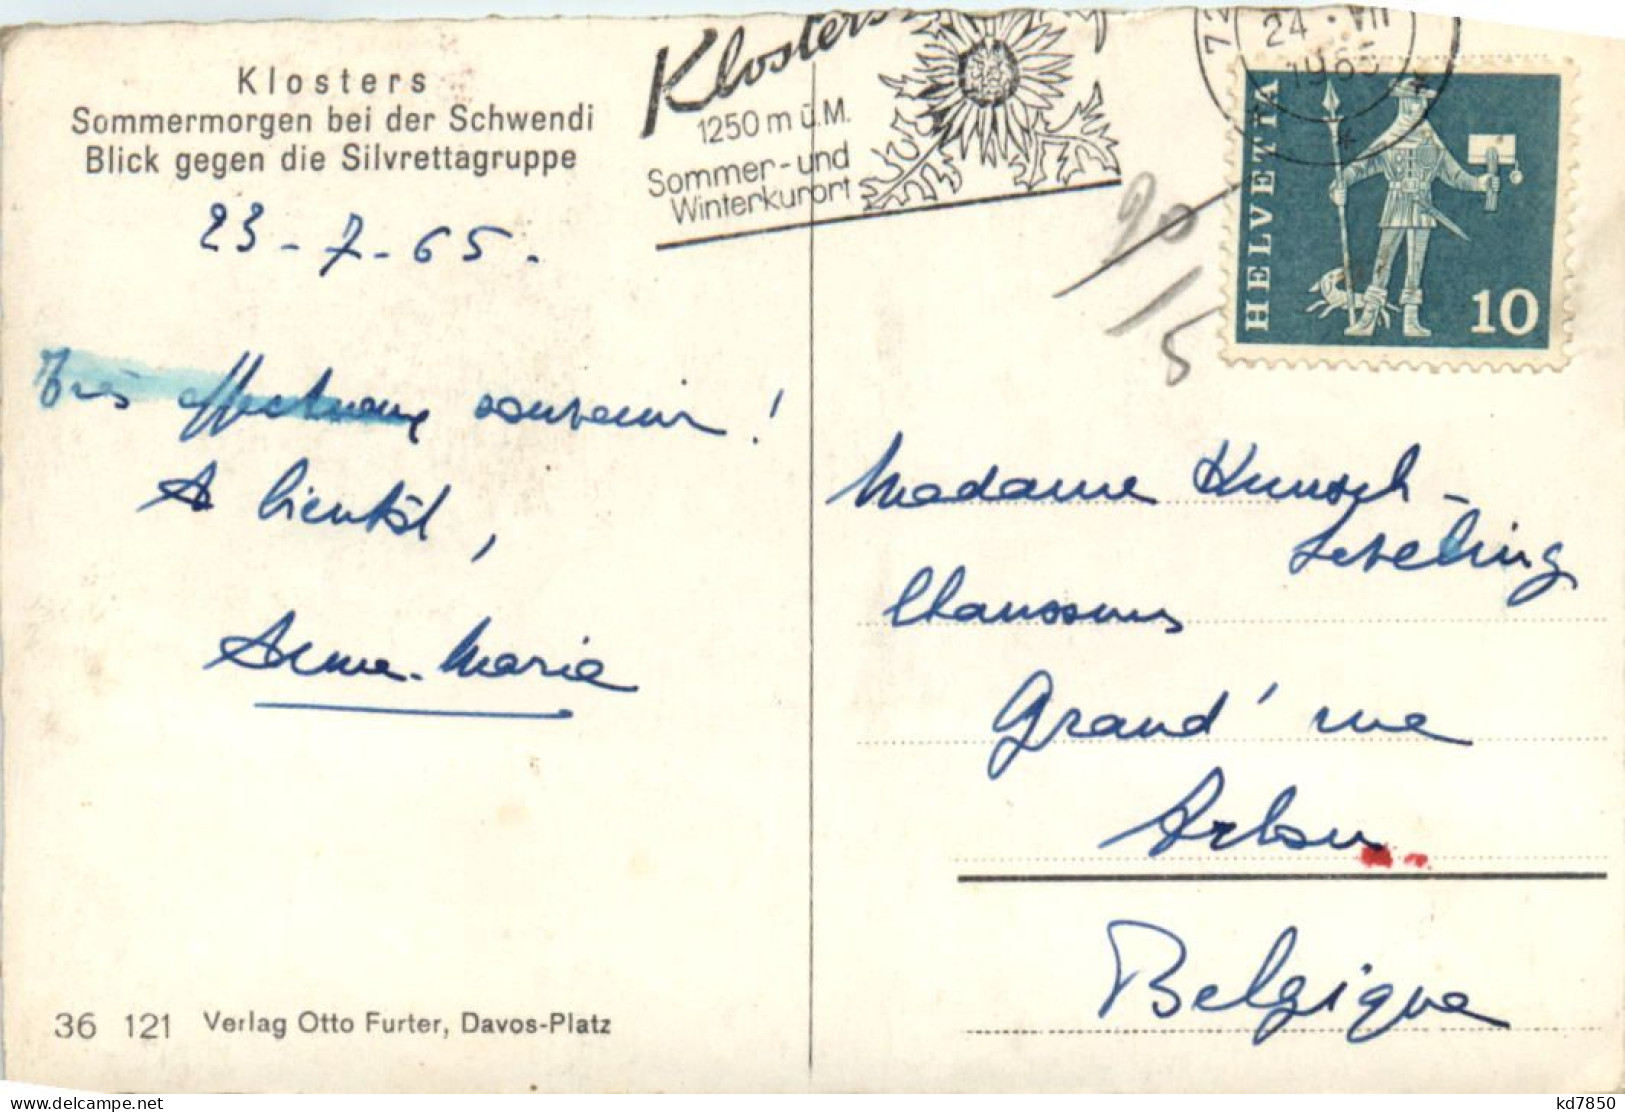 Klosters
Sommermorgen bei der Schwendi
Blick gegen die Silvrettagruppe
23-7-65.
Très affectueux souvenir !
A bientôt,
Anne-Marie
36 121 Verlag Otto Furter, Davos-Platz
Klosters
1250 m ü.M.
Sommer- und
Winterkurort
24 · VII
1965
90
15
HELVETIA
10
Madame Kunsch-
Chaussures
Grand' rue
Arlon
Belgique
www.delcampe.net
kd7850